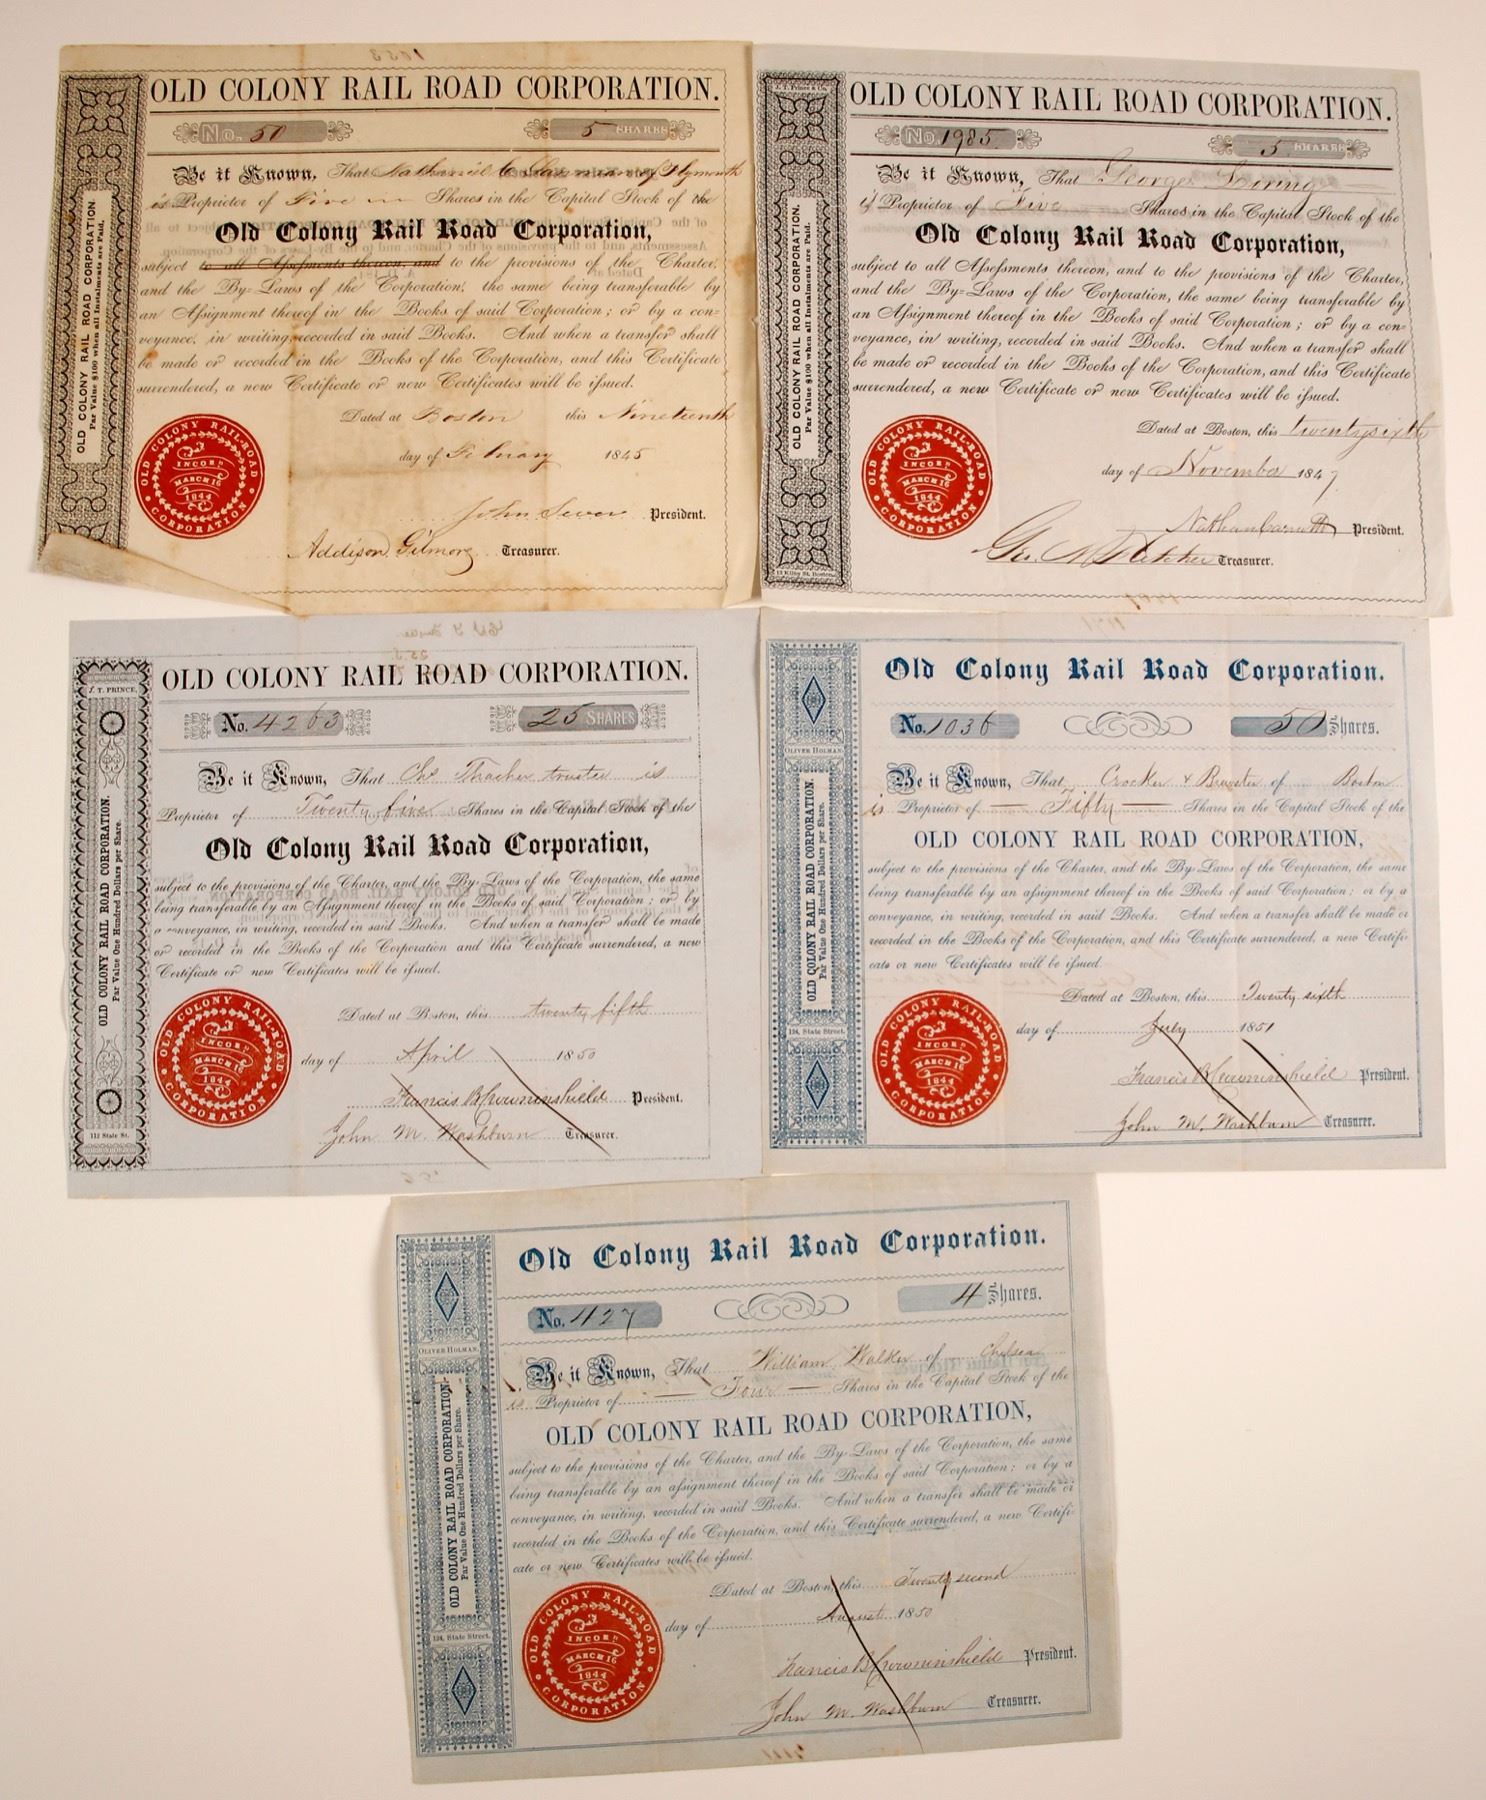 OLD COLONY RAIL ROAD CORPORATION.
No. 50 5 SHARES
Be it Known, That Nathaniel C. of Plymouth
is Proprietor of Five Shares in the Capital Stock of the
Old Colony Rail Road Corporation,
subject to all Assessments thereon, and to the provisions of the Charter,
and the By-Laws of the Corporation, the same being transferable by
an Assignment thereof in the Books of said Corporation; or by a con-
veyance, in writing, recorded in said Books. And when a transfer shall
be made or recorded in the Books of the Corporation, and this Certificate
surrendered, a new Certificate or new Certificates will be issued.
Dated at Boston this Nineteenth
day of February 1845
John Sever President.
Addison Gilmore Treasurer.
OLD COLONY RAIL ROAD CORPORATION.
Par Value $100 when all Instalments are Paid.
OLD COLONY RAIL-ROAD CORPORATION
INCORD
MARCH 16
1844
J. T. Prince & Co.
OLD COLONY RAIL ROAD CORPORATION.
No. 1985 5 SHARES
Be it Known, That George Loring
is Proprietor of Five Shares in the Capital Stock of the
Old Colony Rail Road Corporation,
subject to all Assessments thereon, and to the provisions of the Charter,
and the By-Laws of the Corporation, the same being transferable by
an Assignment thereof in the Books of said Corporation; or by a con-
veyance, in writing, recorded in said Books. And when a transfer shall
be made or recorded in the Books of the Corporation, and this Certificate
surrendered, a new Certificate or new Certificates will be issued.
Dated at Boston, this twentysixth
day of November 1847
Nathan Carruth President.
Geo. M. Fletcher Treasurer.
OLD COLONY RAIL ROAD CORPORATION.
Par Value $100 when all Instalments are Paid.
12 Kilby St. Boston
OLD COLONY RAIL-ROAD CORPORATION
INCORD
MARCH 16
1844
J. T. PRINCE,
OLD COLONY RAIL ROAD CORPORATION.
No. 4263 25 SHARES
Be it Known, That Chs Thacher trustee is
Proprietor of Twenty five Shares in the Capital Stock of the
Old Colony Rail Road Corporation,
subject to the provisions of the Charter, and the By-Laws of the Corporation, the same
being transferable by an Assignment thereof in the Books of said Corporation; or by
a conveyance, in writing, recorded in said Books. And when a transfer shall be made
or recorded in the Books of the Corporation and this Certificate surrendered, a new
Certificate or new Certificates will be issued.
Dated at Boston, this twenty fifth
day of April 1850
Francis B Crowninshield President.
John M. Washburn Treasurer.
OLD COLONY RAIL ROAD CORPORATION.
Par Value One Hundred Dollars per Share.
112 State St.
OLD COLONY RAIL-ROAD CORPORATION
INCORD
MARCH 16
1844
Old Colony Rail Road Corporation.
No. 1036 50 Shares.
OLIVER HOLMAN.
Be it Known, That Crocker & Brewster of Boston
is Proprietor of Fifty Shares in the Capital Stock of the
OLD COLONY RAIL ROAD CORPORATION,
subject to the provisions of the Charter, and the By-Laws of the Corporation, the same
being transferable by an assignment thereof in the Books of said Corporation; or by a
conveyance, in writing, recorded in said Books. And when a transfer shall be made or
recorded in the Books of the Corporation, and this Certificate surrendered, a new Certifi-
cate or new Certificates will be issued.
Dated at Boston, this Twenty sixth
day of July 1851
Francis B Crowninshield President.
John M. Washburn Treasurer.
OLD COLONY RAIL ROAD CORPORATION.
Par Value One Hundred Dollars per Share.
124, State Street.
OLD COLONY RAIL-ROAD CORPORATION
INCORD
MARCH 16
1844
Old Colony Rail Road Corporation.
No. 427 4 Shares.
OLIVER HOLMAN.
Be it Known, That William Walker of Chelsea
is Proprietor of Four Shares in the Capital Stock of the
OLD COLONY RAIL ROAD CORPORATION,
subject to the provisions of the Charter, and the By-Laws of the Corporation, the same
being transferable by an assignment thereof in the Books of said Corporation; or by a
conveyance, in writing, recorded in said Books. And when a transfer shall be made or
recorded in the Books of the Corporation, and this Certificate surrendered, a new Certifi-
cate or new Certificates will be issued.
Dated at Boston, this Twenty second
day of August 1850
Francis B Crowninshield President.
John M. Washburn Treasurer.
OLD COLONY RAIL ROAD CORPORATION.
Par Value One Hundred Dollars per Share.
124, State Street.
OLD COLONY RAIL-ROAD CORPORATION
INCORD
MARCH 16
1844